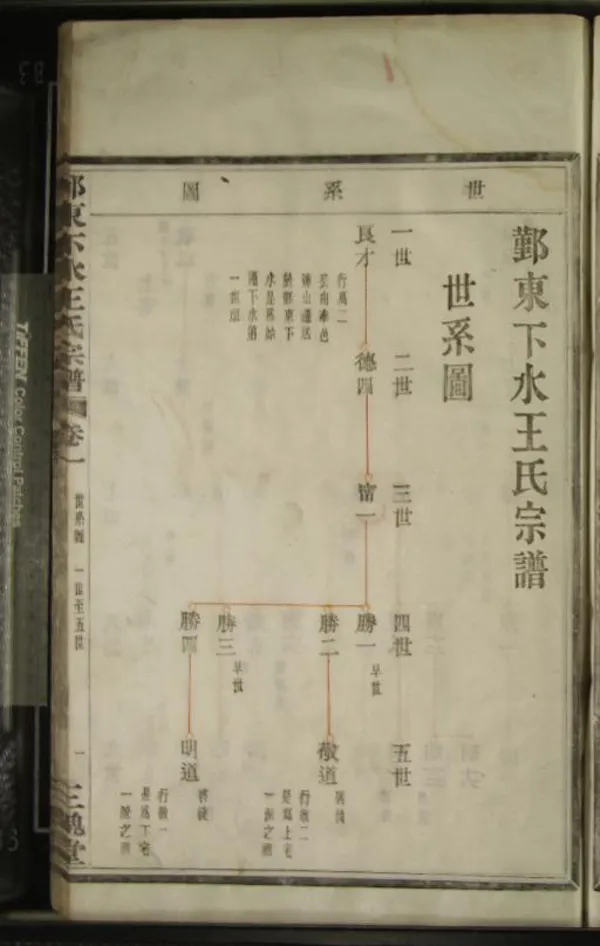 世系圖
鄞東下水王氏宗譜
世系圖
一世
二世
三世
四世
五世
良才
行萬二
於鄞東下
水是爲始
一世
德四
一
勝一
早世
勝二
勝三
早世
勝四
敬道
行敬二
是爲上宅
一派之
明道
行敬一
是爲下宅
一派之
鄞東下水王氏宗譜
卷一
世系圖
一世至五世
一
三槐堂
TIFFEN Color Control Patches
B3